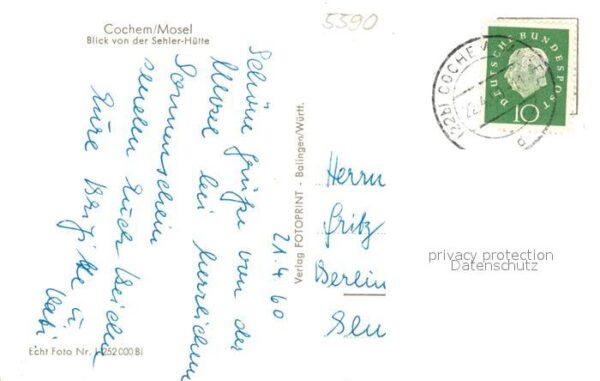 Cochem/Mosel
Blick von der Sehler-Hütte
5590
Schöne Grüße von der
Mosel bei herrlichem
Sonnenschein
senden Euch beiden
Eure Brigitte u.
21.4.60
Echt Foto Nr. L 252 000 Bi
Verlag FOTOPRINT - Balingen/Württ.
Herrn
Fritz
Berlin
DEUTSCHE BUNDESPOST
10
(22b) COCHEM
privacy protection
Datenschutz